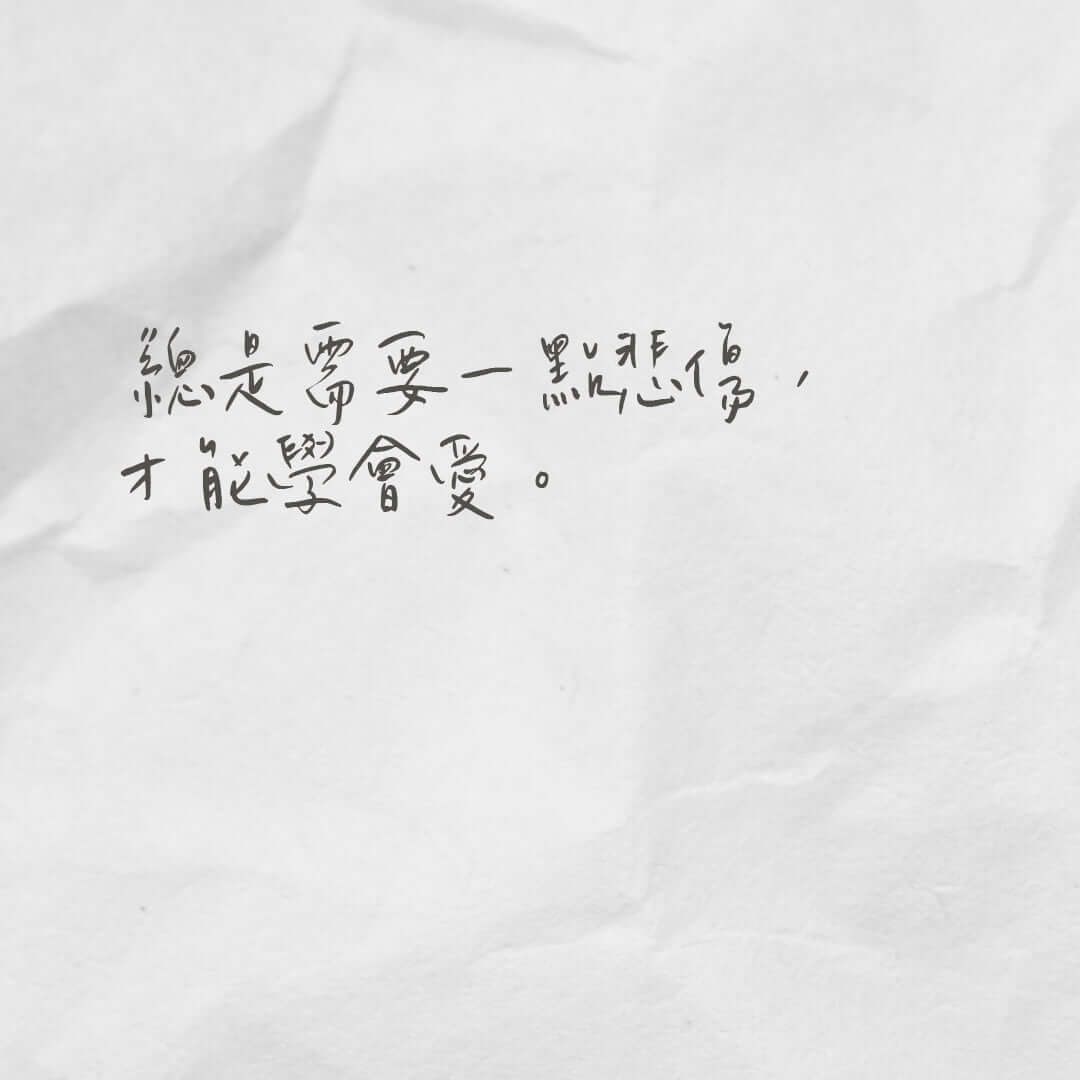 總是需要一點悲傷，
才能學會愛。